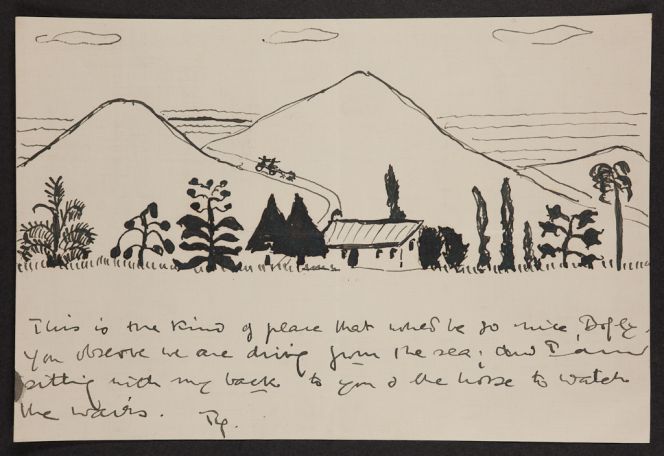 This is the kind of place that wd be so nice,
You observe we are driving from the sea; and I am
sitting with my back to you & the horse to watch
the waves.